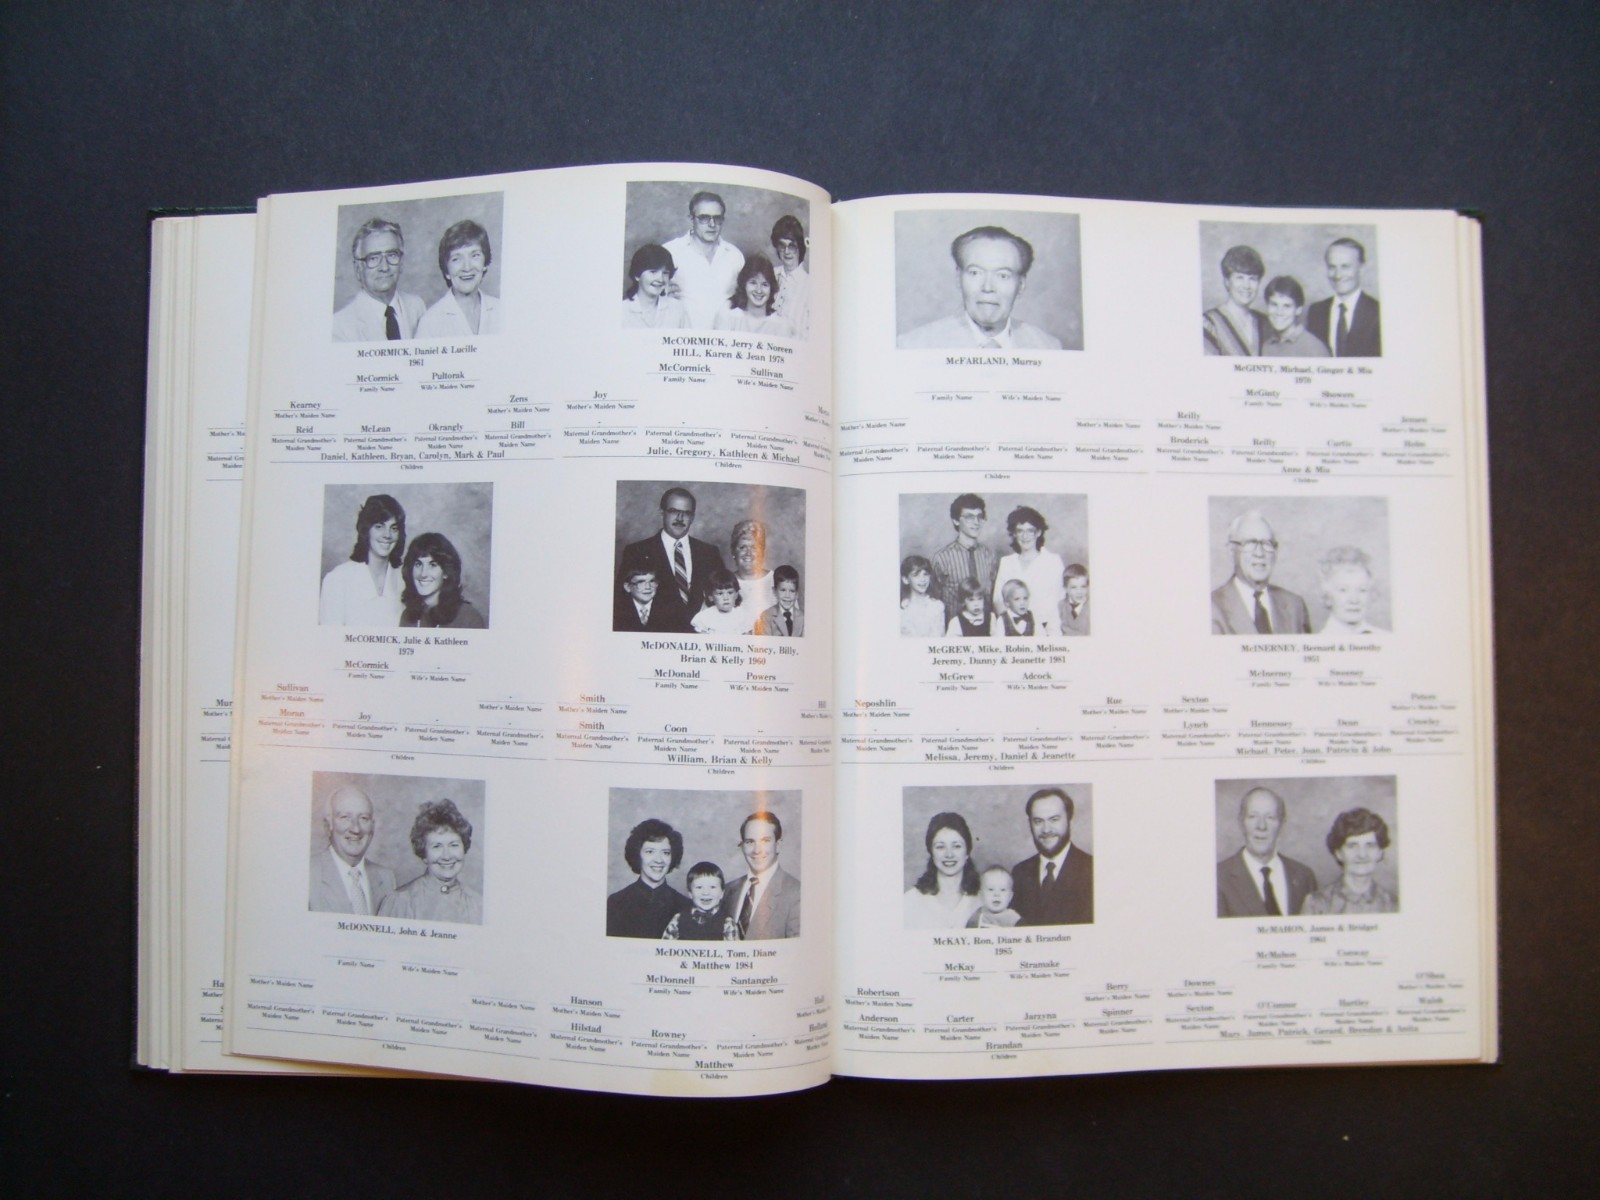 McCORMICK, Daniel & Lucille
1961
McCormick Pultorak
Family Name Wife's Maiden Name
Kearney Zens
Mother's Maiden Name Mother's Maiden Name
Reid McLean Okrangly Bill
Maternal Grandmother's Maiden Name Paternal Grandmother's Maiden Name Paternal Grandmother's Maiden Name Maternal Grandmother's Maiden Name
Daniel, Kathleen, Bryan, Carolyn, Mark & Paul
Children
McCORMICK, Jerry & Noreen
HILL, Karen & Jean 1978
McCormick Sullivan
Family Name Wife's Maiden Name
Joy
Mother's Maiden Name
Maternal Grandmother's Maiden Name Paternal Grandmother's Maiden Name Paternal Grandmother's Maiden Name
Julie, Gregory, Kathleen & Michael
Children
McCORMICK, Julie & Kathleen
1979
McCormick -
Family Name Wife's Maiden Name
Sullivan -
Mother's Maiden Name Mother's Maiden Name
Moran Joy - -
Maternal Grandmother's Maiden Name Paternal Grandmother's Maiden Name Paternal Grandmother's Maiden Name Maternal Grandmother's Maiden Name
Children
McDONALD, William, Nancy, Billy,
Brian & Kelly 1960
McDonald Powers
Family Name Wife's Maiden Name
Smith
Mother's Maiden Name
Smith Coon
Maternal Grandmother's Maiden Name Paternal Grandmother's Maiden Name Paternal Grandmother's Maiden Name
William, Brian & Kelly
Children
McDONNELL, John & Jeanne
Family Name Wife's Maiden Name
Mother's Maiden Name Mother's Maiden Name
Maternal Grandmother's Maiden Name Paternal Grandmother's Maiden Name Paternal Grandmother's Maiden Name Maternal Grandmother's Maiden Name
Children
McDONNELL, Tom, Diane
& Matthew 1984
McDonnell Santangelo
Family Name Wife's Maiden Name
Hanson
Mother's Maiden Name
Hilstad Rowney -
Maternal Grandmother's Maiden Name Paternal Grandmother's Maiden Name Paternal Grandmother's Maiden Name
Matthew
Children
McFARLAND, Murray
Family Name Wife's Maiden Name
Mother's Maiden Name Mother's Maiden Name
Maternal Grandmother's Maiden Name Paternal Grandmother's Maiden Name Paternal Grandmother's Maiden Name Maternal Grandmother's Maiden Name
Children
McGINTY, Michael, Ginger & Mia
1970
McGinty Showers
Family Name Wife's Maiden Name
Reilly Jensen
Mother's Maiden Name Mother's Maiden Name
Broderick Reilly Curtis Holm
Maternal Grandmother's Maiden Name Paternal Grandmother's Maiden Name Paternal Grandmother's Maiden Name Maternal Grandmother's Maiden Name
Anne & Mia
Children
McGREW, Mike, Robin, Melissa,
Jeremy, Danny & Jeanette 1981
McGrew Adcock
Family Name Wife's Maiden Name
Neposhlin Rue
Mother's Maiden Name Mother's Maiden Name
Maternal Grandmother's Maiden Name Paternal Grandmother's Maiden Name Paternal Grandmother's Maiden Name Maternal Grandmother's Maiden Name
Melissa, Jeremy, Daniel & Jeanette
Children
McINERNEY, Bernard & Dorothy
1951
McInerney Sweeney
Family Name Wife's Maiden Name
Sexton Peters
Mother's Maiden Name Mother's Maiden Name
Lynch Hennessey Dean Crowley
Maternal Grandmother's Maiden Name Paternal Grandmother's Maiden Name Paternal Grandmother's Maiden Name Maternal Grandmother's Maiden Name
Michael, Peter, Joan, Patricia & John
Children
McKAY, Ron, Diane & Brandan
1985
McKay Stramake
Family Name Wife's Maiden Name
Robertson Berry
Mother's Maiden Name Mother's Maiden Name
Anderson Carter Jarzyna Spinner
Maternal Grandmother's Maiden Name Paternal Grandmother's Maiden Name Paternal Grandmother's Maiden Name Maternal Grandmother's Maiden Name
Brandan
Children
McMAHON, James & Bridget
1964
McMahon Conway
Family Name Wife's Maiden Name
Downes O'Shea
Mother's Maiden Name Mother's Maiden Name
Sexton O'Connor Hartley Walsh
Maternal Grandmother's Maiden Name Paternal Grandmother's Maiden Name Paternal Grandmother's Maiden Name Maternal Grandmother's Maiden Name
Mary, James, Patrick, Gerard, Brendan &
Children